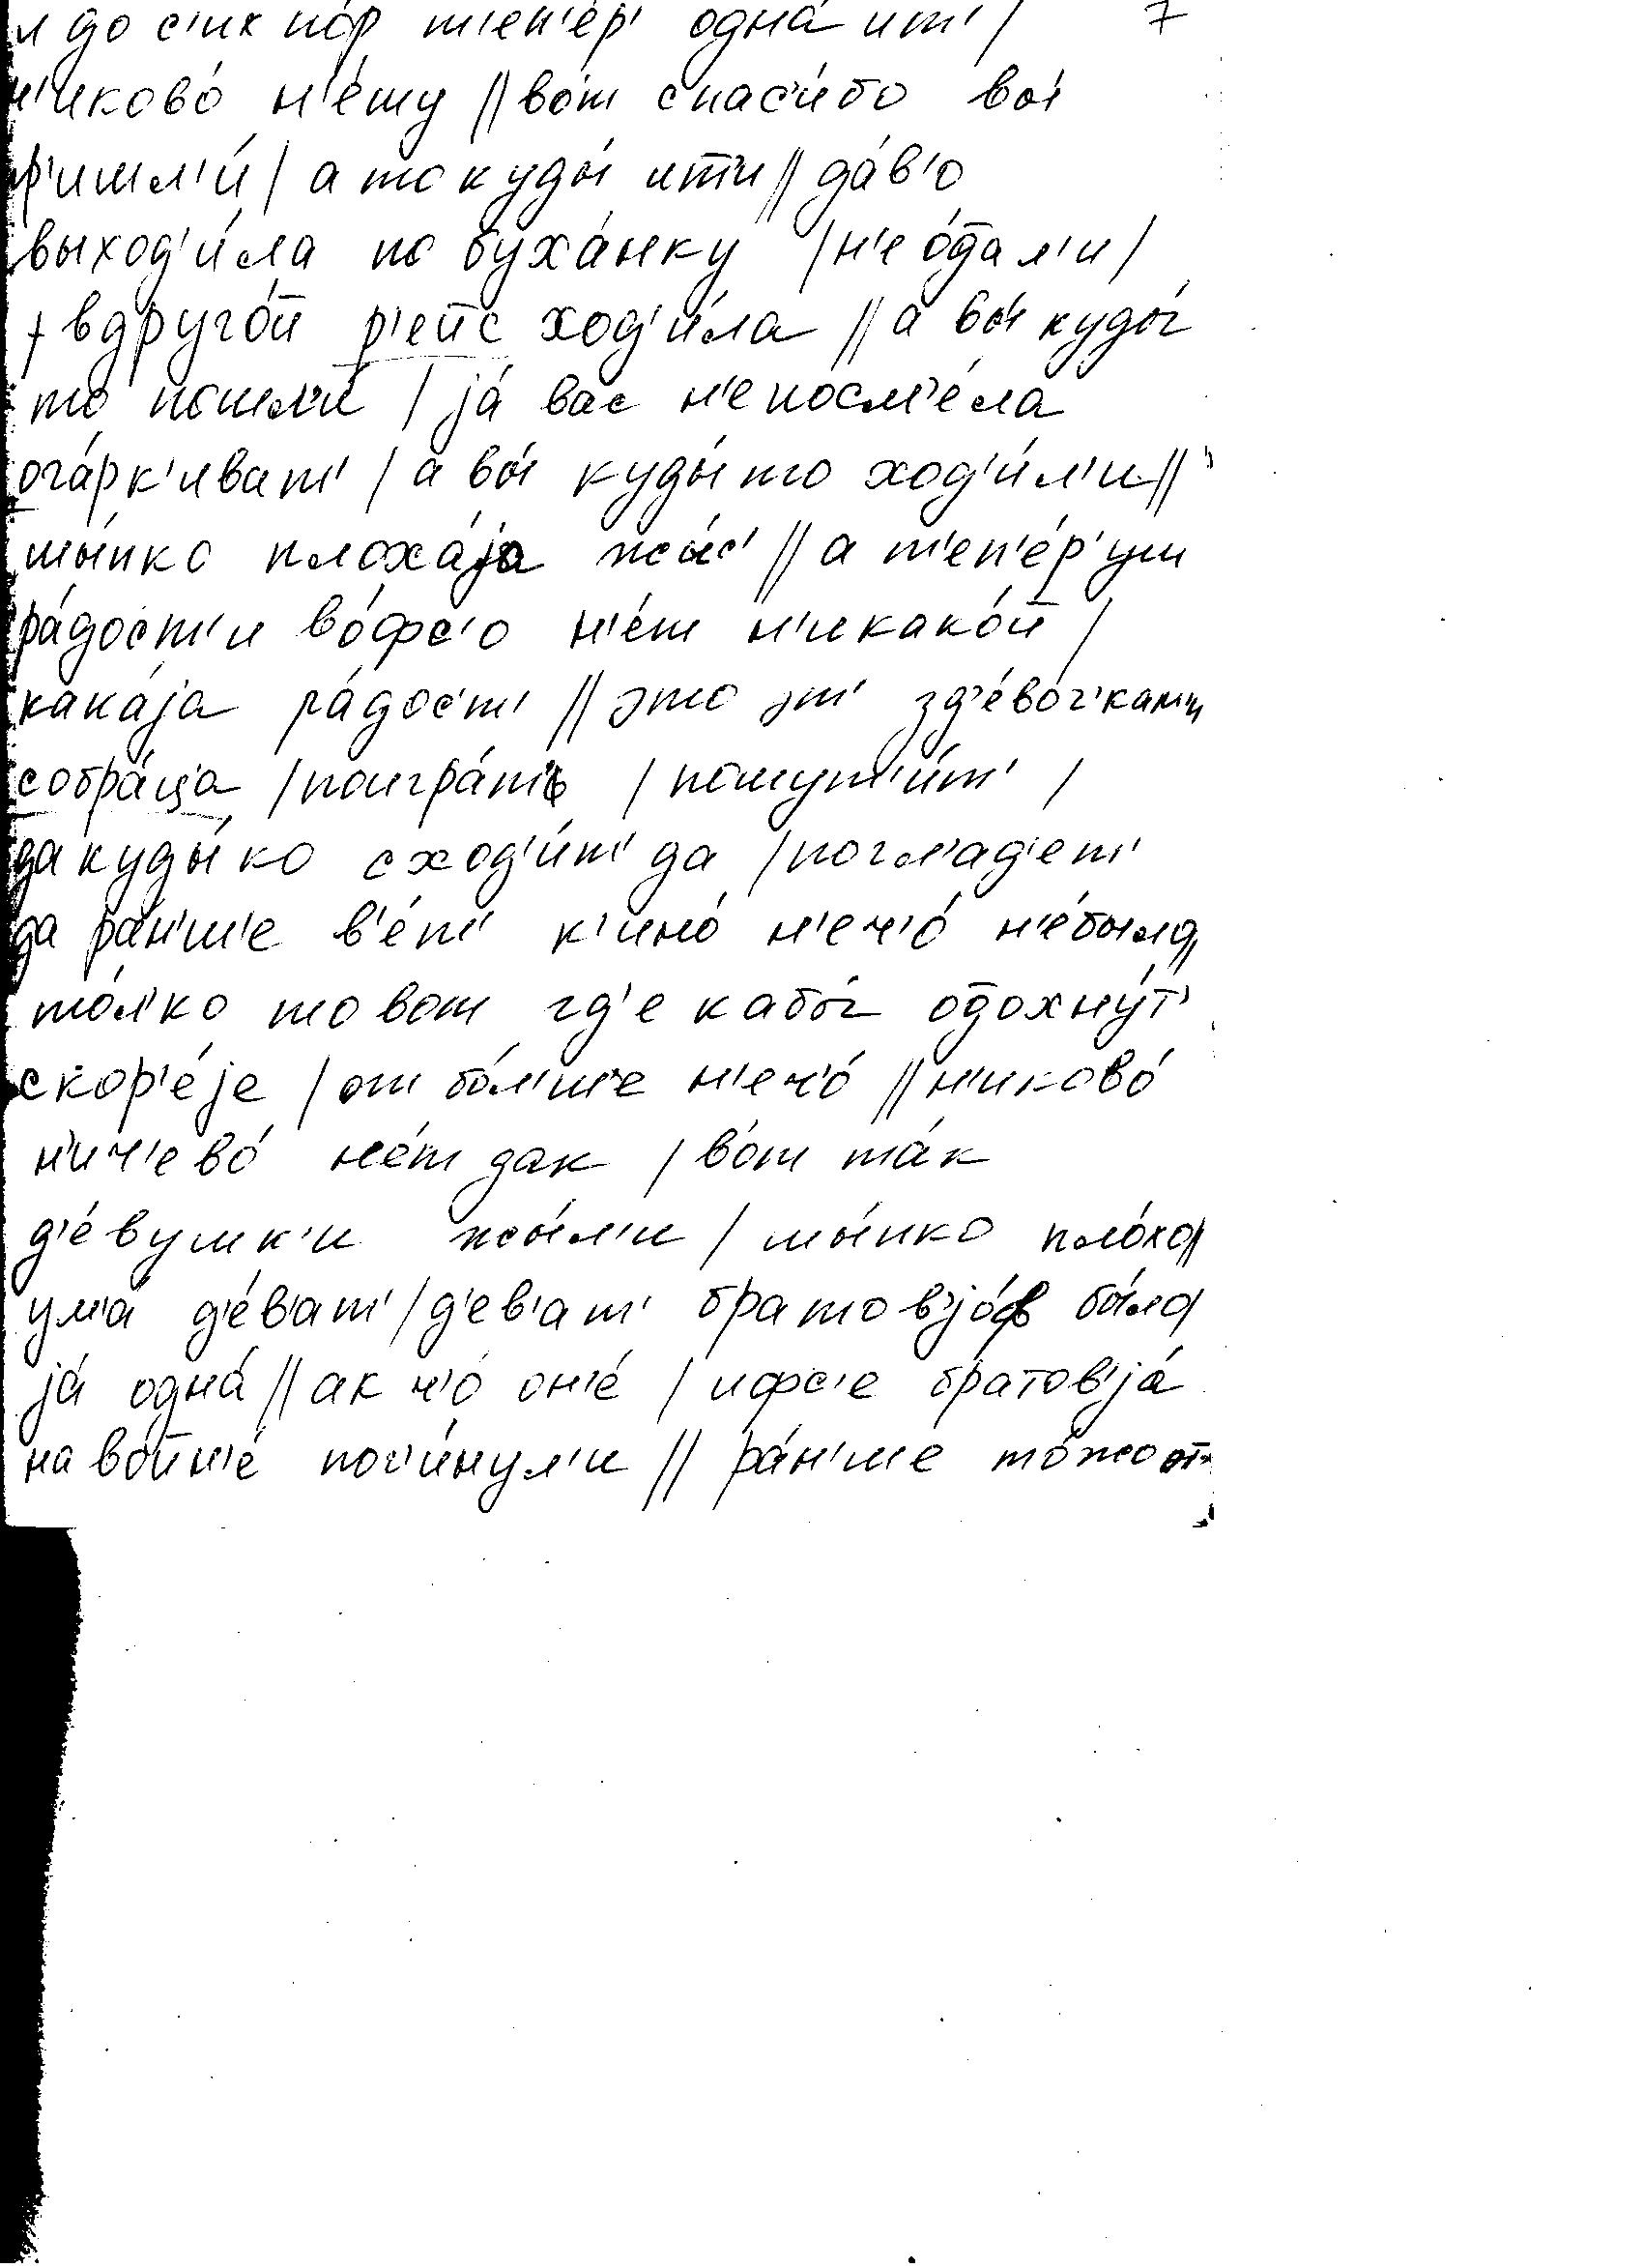 и до с'их по́р т'еп'е́р' одна́ ит' / 7
н'иково́ н'е́ту // во́т спас'и́бо вы́
р'ишл'и́ / а то куды́ ит'и // да́в'о
выход'и́ла по буха́нку / н'е о́т̄ал'и /
в друго́й р'ейс ход'и́ла // а вы́ куды́
то пошл'и́ / jа́ вас н'е посм'е́ла
ога́рк'иват' / а вы́ куды́ то ход'и́л'и //
шы́пко плоха́jа жы́с' // а т'еп'е́р' уш
ра́дост'и во́фс'о н'е́т н'икако́й /
кака́jа ра́дос'т' // это эт' з д'е́во́ч'кам'и
собра́ц̄а / поигра́т' / пошут'и́т' /
да куды́ ко сход'и́т' да / погл'ад'ет'
да ра́н'ш'е в'е́т' к'ино́ н'еч'о́ н'е́было //
то́л'ко то вот гд'е кабы́ от̄охну́т'
скор'е́jе / от бо́л'ш'е н'еч'о́ // н'иково́
н'ич'ево́ не́т дак / во́т та́к
д'е́вушк'и жы́л'и / шы́пко пло́хо //
ум'а́ д'е́в'ат' / д'ев'ат' братов'jо́в бы́ло /
jа́ одна́ // ак ч'о́ он'е́ / и фс'е братов'jа́
на войн'е́ пог'и́нул'и // ра́н'ше то́жо от